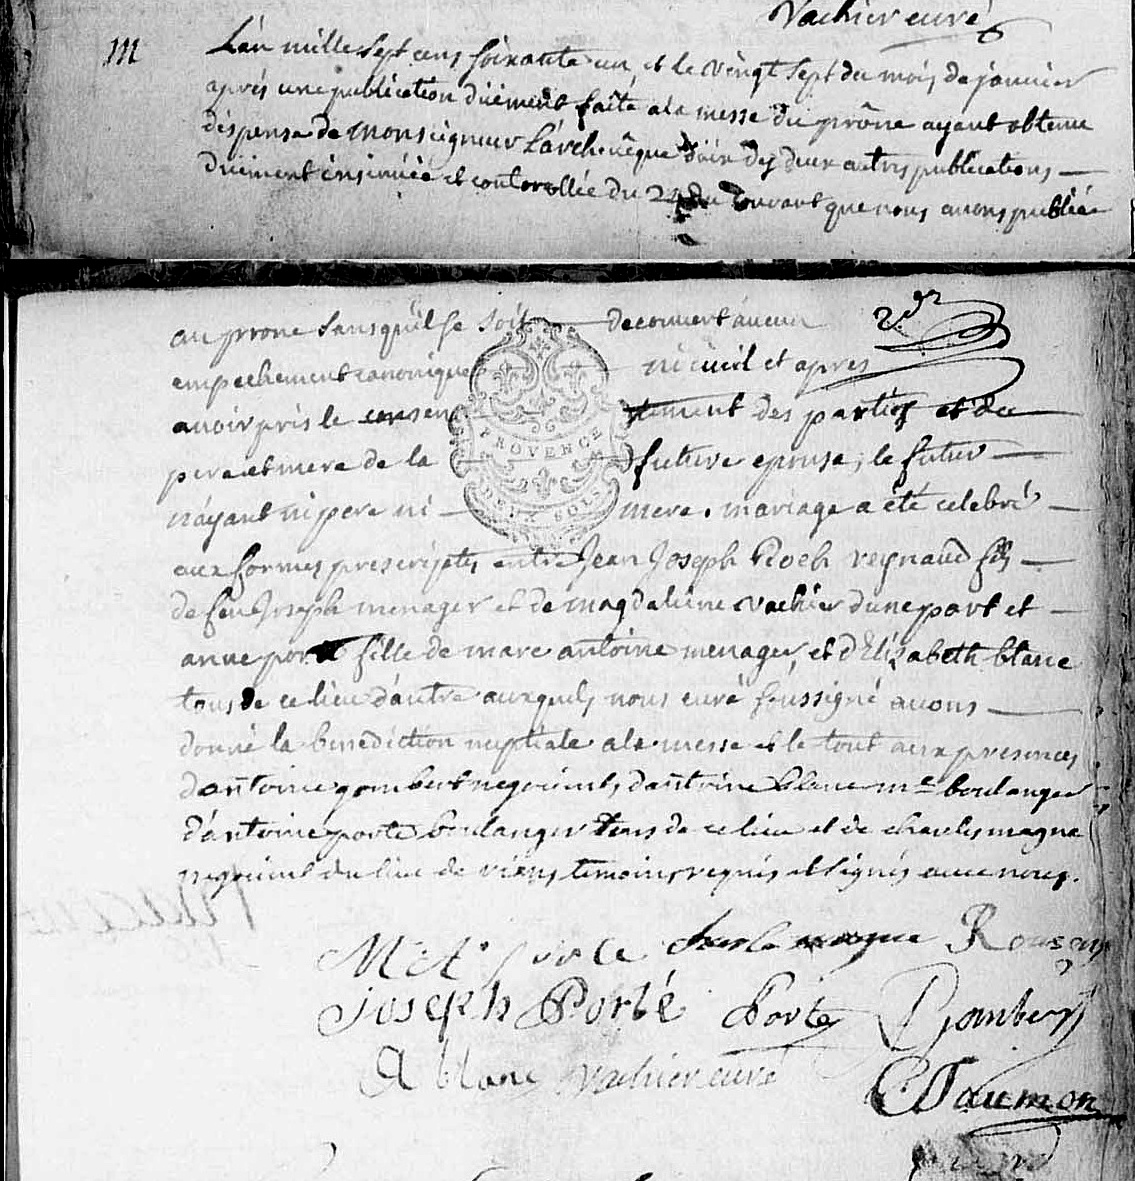 Vachier curé
M
L'an mille sept cens soixante un, et le vingt sept du mois de janvier
après une publication düement faite a la messe du prône ayant obtenu
dispense de Monseigneur L'archevêque d'aix des deux autres publications
düement insinuée et controllée du 24 du courant que nous avons publiée
au prone sans qu'il se soit decouvert aucun
empechement canonique ni civil et apres
avoir pris le consentement des parties et du
pere et mere de la future epouse; le futur
n'ayant ni pere ni mere. mariage a été celebré
aux formes prescriptes, entre Jean Joseph Roch reynaud fils
de feu Joseph menager et de magdaleine vachier d'une part et
anne porte fille de marc antoine menager, et d'Elizabeth blanc
tous de ce lieu d'autre auxquels nous curé soussigné avons
donné la benediction nuptiale a la messe et le tout aux presences
d'antoine gombert negociant, d'antoine blanc me boulanger
d'antoine porte boulanger tous de ce lieu et de charles magne
negociant du lieu de viens temoins requis et signés avec nous.
PROVENCE
DEUX SOLS
M A porte Charle magne
Joseph Porté Porte Gombert
A blanc vachier curé
C Jaumon